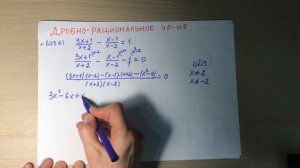 ДРОБНО-РАЦИОНАЛЬНОЕ УР-ИЕ
(3x+1)/(x+2) - (x-1)/(x-2) = 1
(3x+1)/(x+2) - (x-1)/(x-2) - 1 = 0
((3x+1)(x-2)-(x-1)(x+2)-(x²-4))/((x+2)(x-2)) = 0
ОДЗ:
x≠2
x≠-2
3x²-6x+x